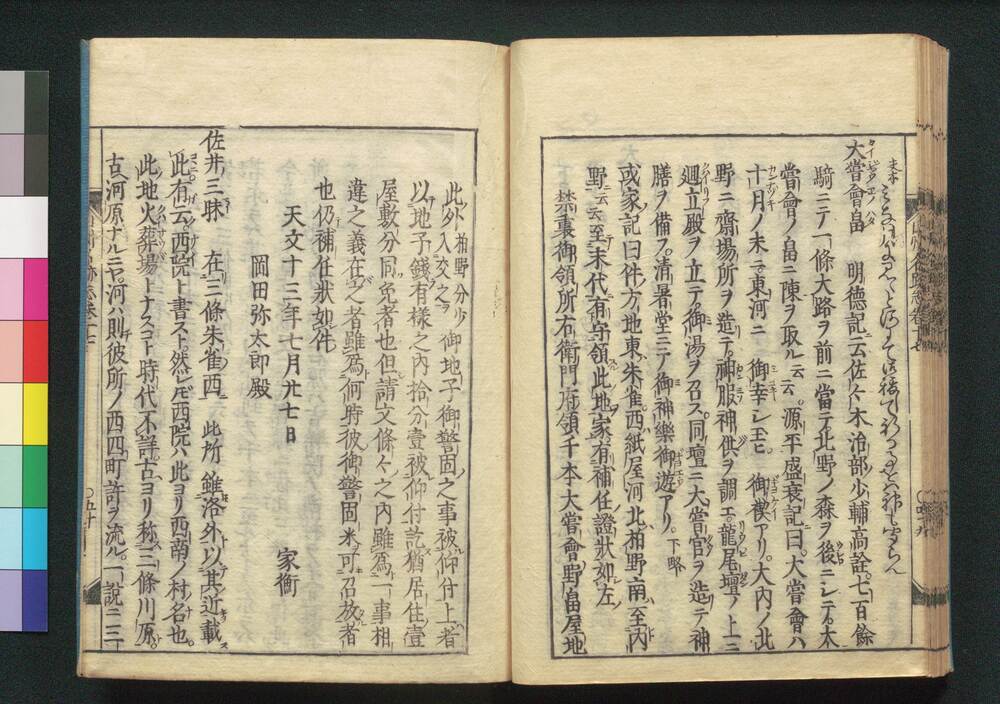 大嘗會畠 明徳記ニ云佐々木治部少輔高詮。七百餘
騎ニテ一條大路ヲ前ニ當テ北野ノ森ヲ後ニシテ大
嘗會ノ畠ニ陳ヲ取ル云云。源平盛衰記ニ曰。大嘗會ハ
十月ノ末ニ東河ニ 御幸シ玉ヒ。 御禊アリ。大内ノ北
野ニ齋場所ヲ造テ。神服神供ヲ調エ。龍尾壇ノ上ニ
廻立殿ヲ立テ御湯ヲ召ス。同壇ニ大嘗宮ヲ造テ神
膳ヲ備フ。清暑堂ニテ御神樂御遊アリ。下略
或家記曰件方地東朱雀西紙屋河北柏野南至内
野云云至末代有守領此地家有補任證状如左
禁裏御領所右衛門府領千本大嘗會野畠屋地
此外柏野分少入交之 御地子御警固之事被仰付上者
以地子錢有樣之内拾分壹被仰付訖猶居住壹
屋敷分同免者也但請文條々之内雖為一事相
違之義在之者雖為何時彼御警固米可召放者
也仍補任状如件
天文十三年七月廿七日 家衡
岡田弥太郎殿
佐井三昧 在三條朱雀西 此所雖洛外以其近載
此有云。西院ト書スト然レモ西院ハ此ヨリ西南ノ村名也。
此地火葬場トナスコト時代不詳古ヨリ称三條川原
古河原ナルニヤ。河ハ則彼所ノ西四町許ヲ流ル。一説ニ二
○五十